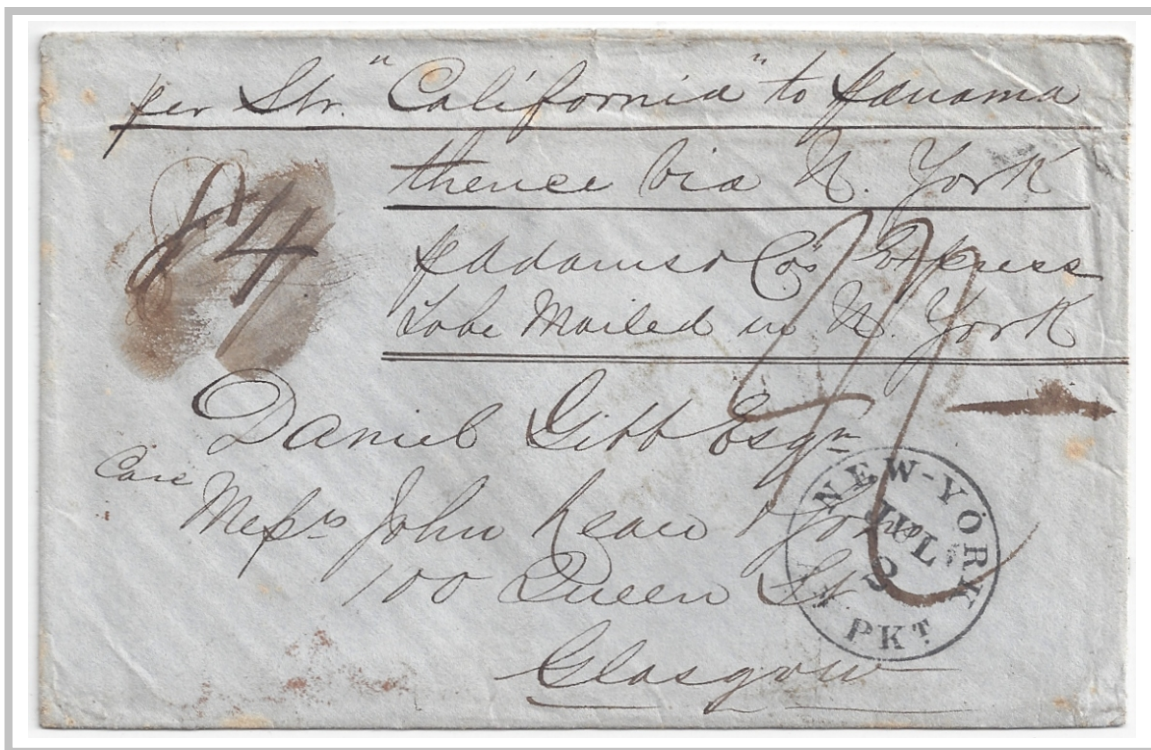 per Str. "California" to Panama
thence via N. York
p Adams & Co's Express
To be Mailed in N. York
Daniel Gibb Esqr
Care Messrs John &
100 Queen St
Glasgow
NEW-YORK
JUL
PKT